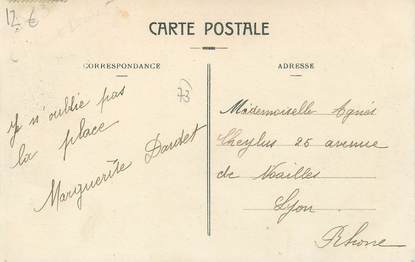 12 €
CARTE POSTALE
CORRESPONDANCE
ADRESSE
73)
Je n'oublie pas
la place
Marguerite Daudet
Mademoiselle Agnès
Cheylus 25 avenue
de Noailles
Lyon
Rhone